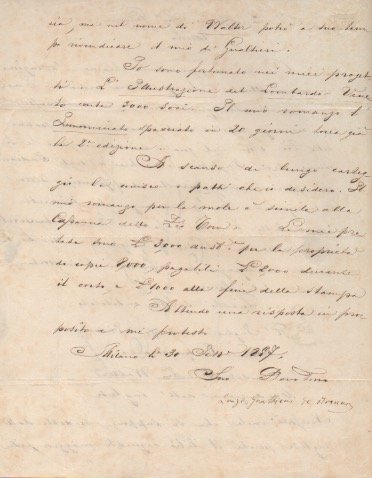 sia, ma nel nome di Walter potrò a suo tem
po rivendicare il mio di Gualtieri.
Io sono fortunato nei miei proget
ti. L'Illustrazione del Lombardo-Vene
to conta 3000 soci. Il mio romanzo l'
Innominato spacciato in 20 giorni tocca già
la 2a edizione.
A scanso di lungo carteg
gio le unisco i patti che io desidero. Il
mio romanzo per la mole è simile alla
Capanna dello Zio Tom. Le mie pre
tese sono £ 3000 aust. per la proprietà
di copie 8000, pagabili £ 2000 durante
il corso e £ 1000 alla fine della stampa
Attendo una risposta in pro
posito e mi protesto
Milano li 30 1857.
Suo
Luigi Gualtieri di